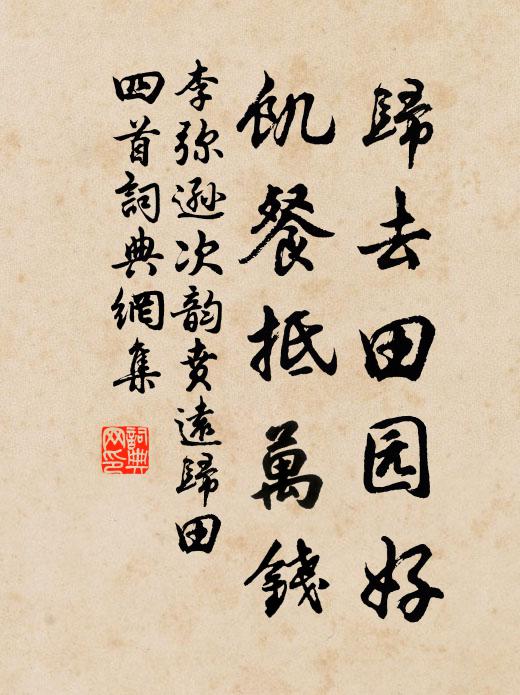 歸去田园好
飢餐抵萬錢
李弥遜次韵賁遠歸田
四首詞典網集
詞典
网印